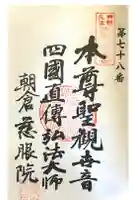 第七十八番
本尊聖觀世音
四國直傳弘法大師
朝倉慈眼院